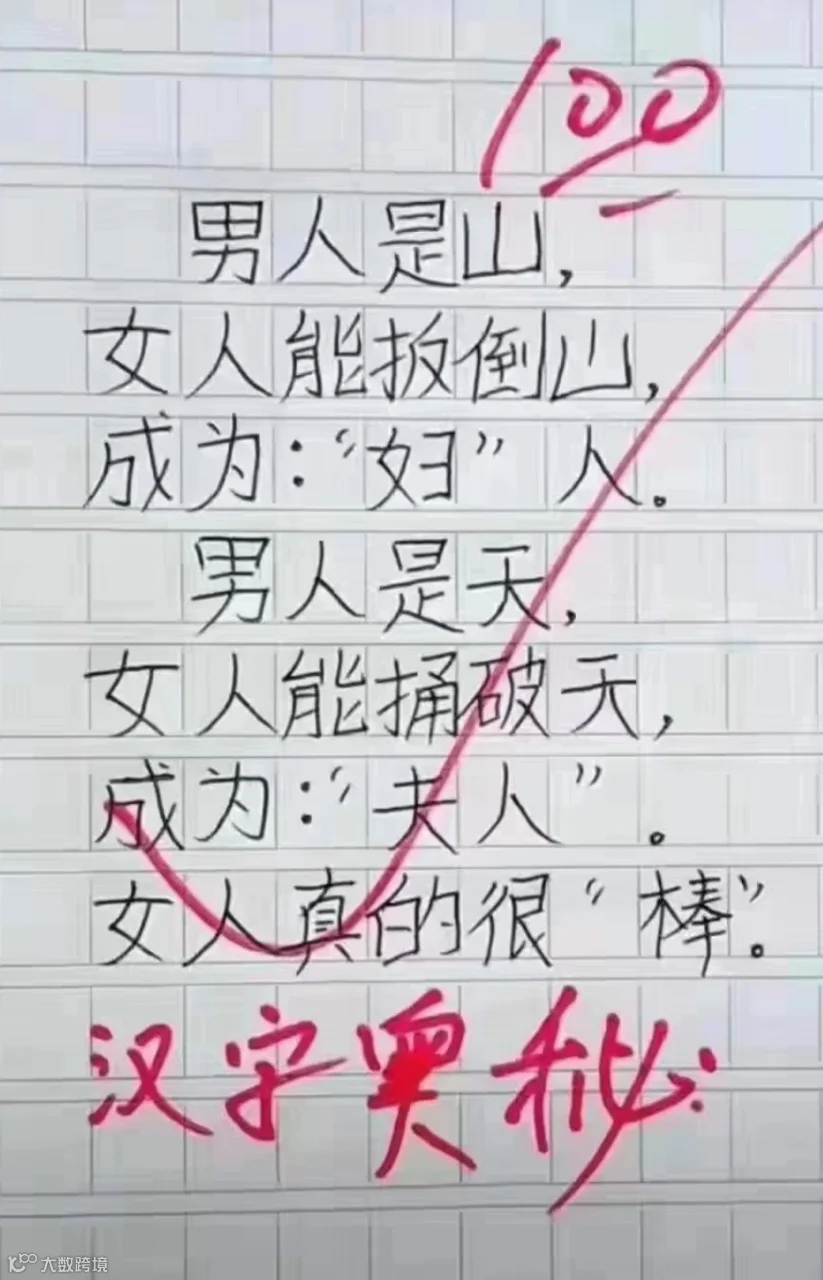 100
男人是山,
女人能扳倒山,
成为:“妇”人。
男人是天,
女人能捅破天,
成为:“夫人”。
女人真的很“棒”。
汉字奥秘
大数跨境